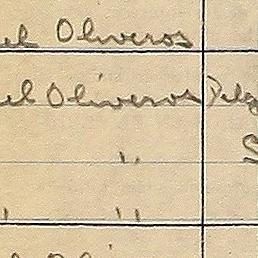 el Oliveros
el Oliveros Pelg
"
" "